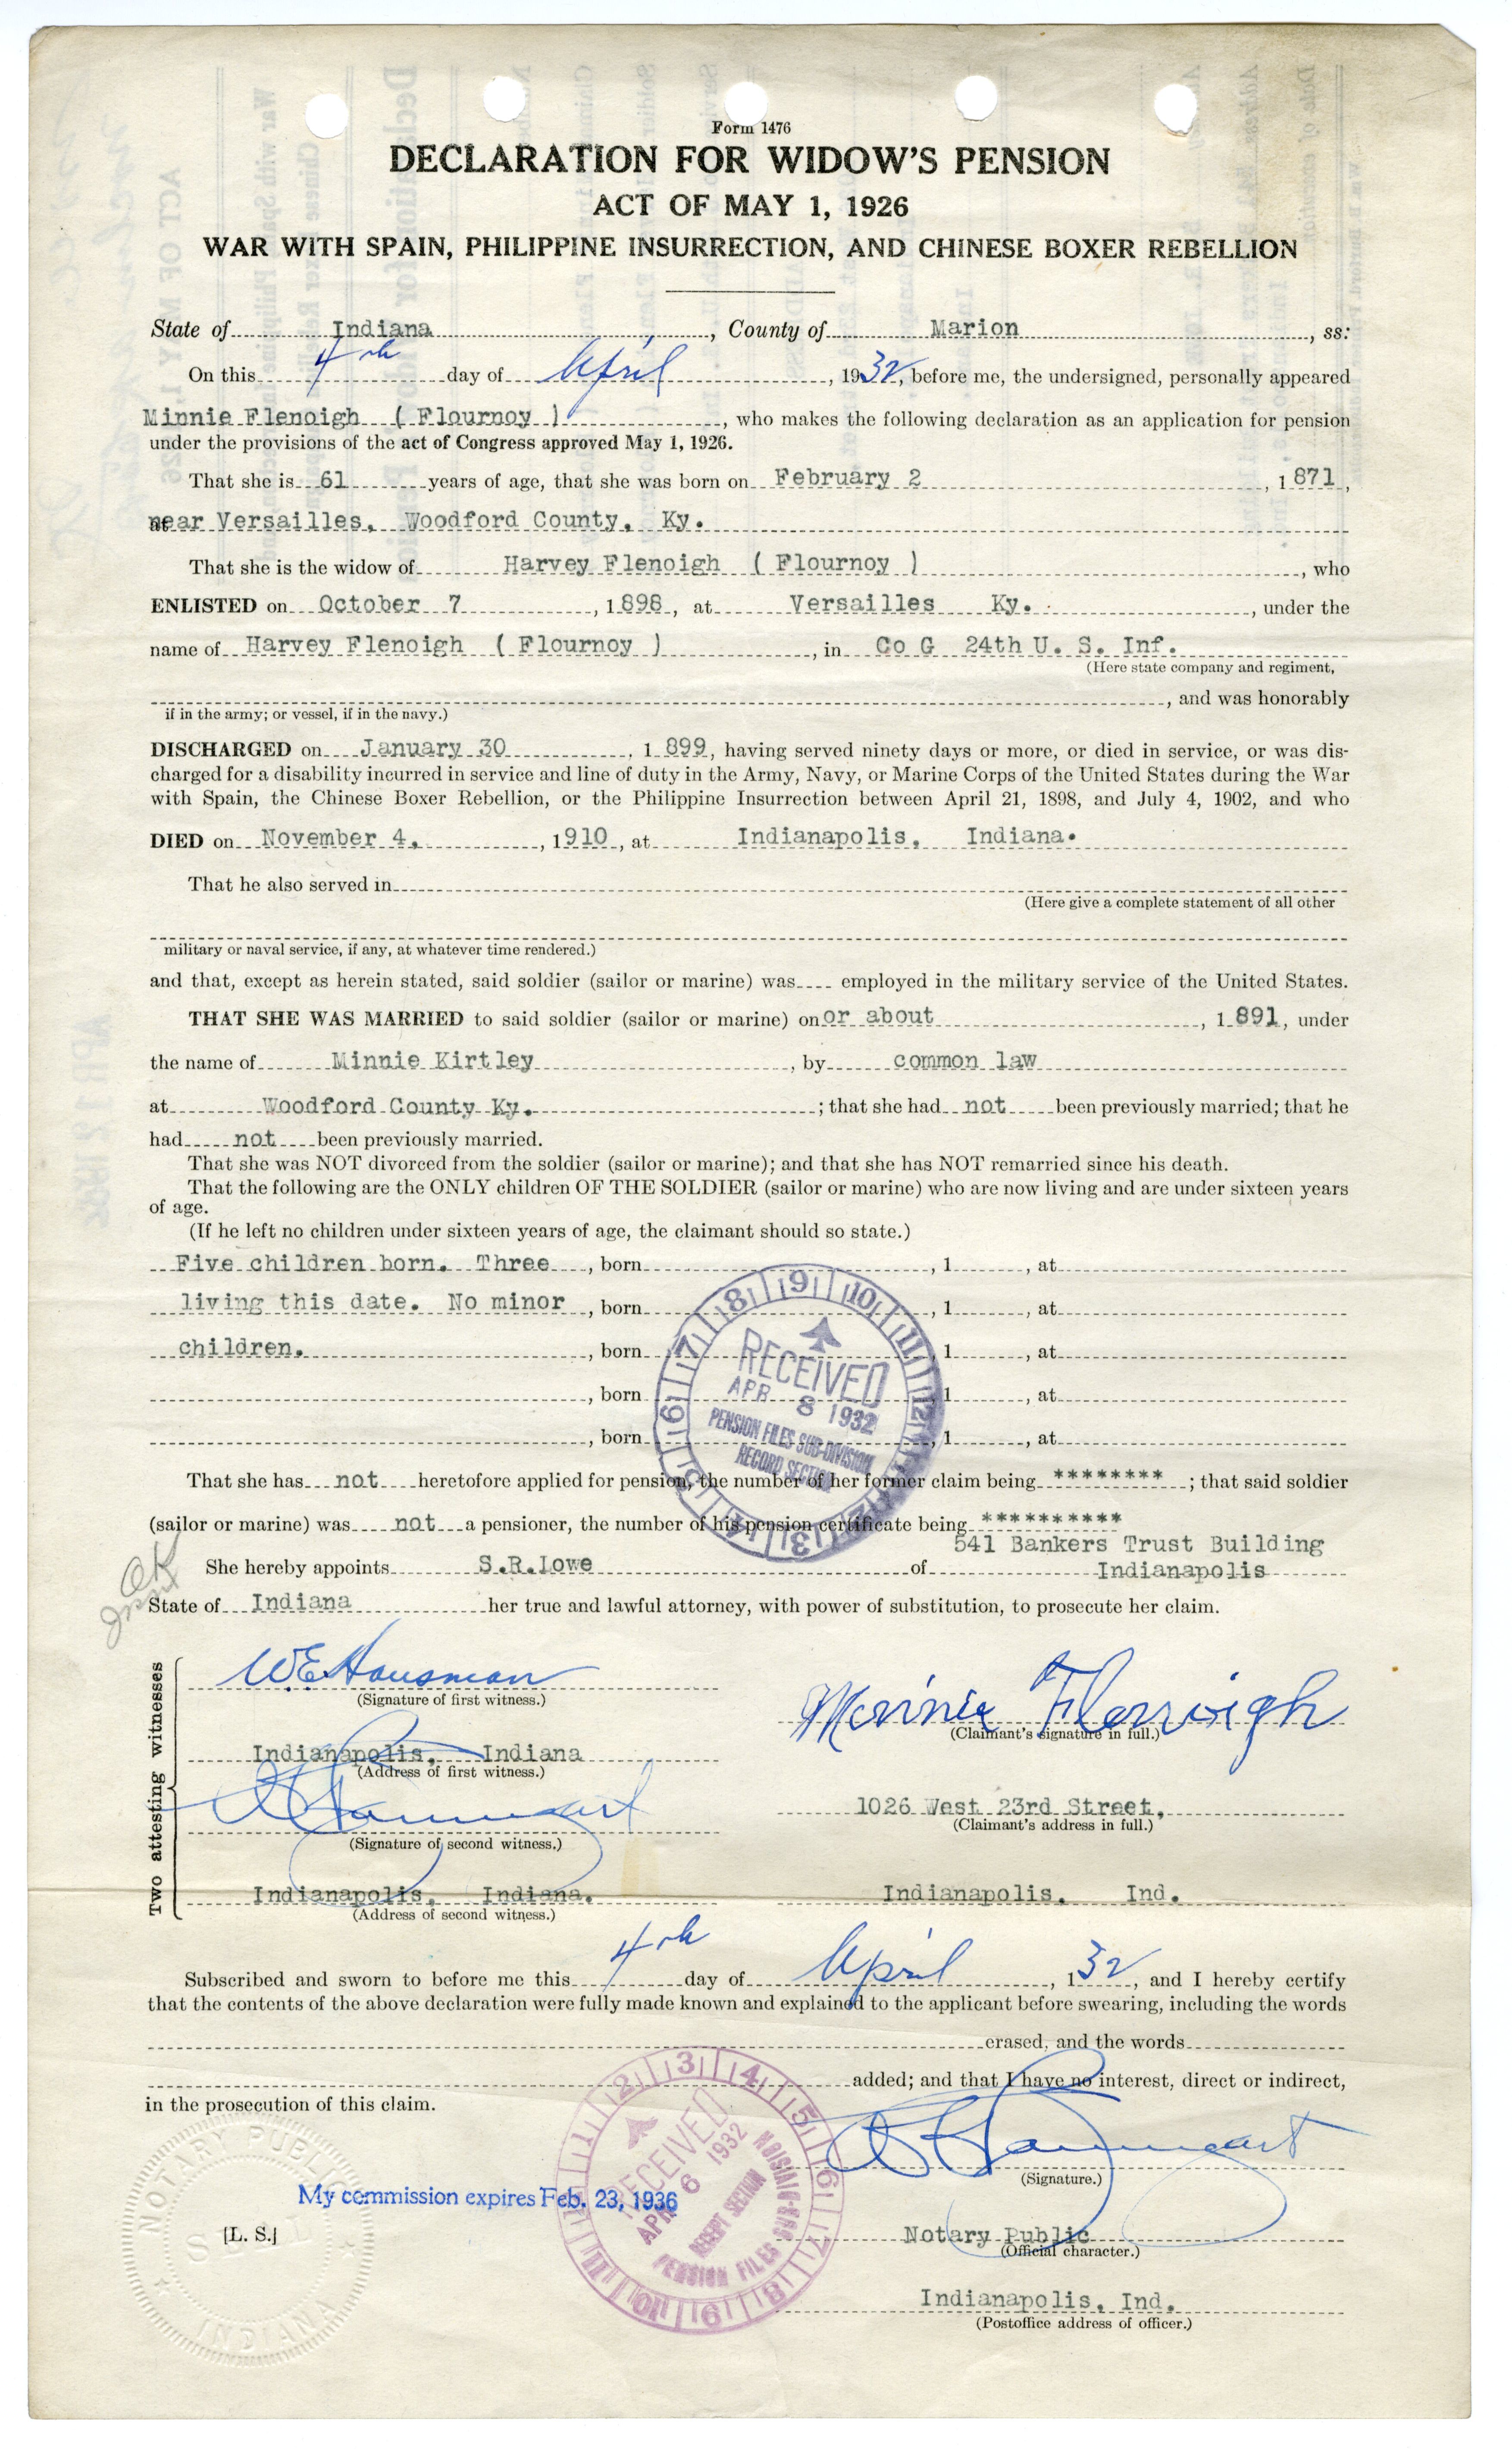 Form 1476
DECLARATION FOR WIDOW'S PENSION
ACT OF MAY 1, 1926
WAR WITH SPAIN, PHILIPPINE INSURRECTION, AND CHINESE BOXER REBELLION
State of Indiana, County of Marion, ss:
On this 4th day of April, 1932, before me, the undersigned, personally appeared
Minnie Flenoigh ( Flournoy ), who makes the following declaration as an application for pension
under the provisions of the act of Congress approved May 1, 1926.
That she is 61 years of age, that she was born on February 2, 1871,
near Versailles, Woodford County, Ky.
That she is the widow of Harvey Flenoigh ( Flournoy ), who
ENLISTED on October 7, 1898, at Versailles Ky., under the
name of Harvey Flenoigh ( Flournoy ), in Co G 24th U. S. Inf.
(Here state company and regiment,
, and was honorably
if in the army; or vessel, if in the navy.)
DISCHARGED on January 30, 1899, having served ninety days or more, or died in service, or was dis-
charged for a disability incurred in service and line of duty in the Army, Navy, or Marine Corps of the United States during the War
with Spain, the Chinese Boxer Rebellion, or the Philippine Insurrection between April 21, 1898, and July 4, 1902, and who
DIED on November 4, 1910, at Indianapolis, Indiana.
That he also served in
(Here give a complete statement of all other
military or naval service, if any, at whatever time rendered.)
and that, except as herein stated, said soldier (sailor or marine) was employed in the military service of the United States.
THAT SHE WAS MARRIED to said soldier (sailor or marine) on or about, 1891, under
the name of Minnie Kirtley, by common law
at Woodford County Ky.; that she had not been previously married; that he
had not been previously married.
That she was NOT divorced from the soldier (sailor or marine); and that she has NOT remarried since his death.
That the following are the ONLY children OF THE SOLDIER (sailor or marine) who are now living and are under sixteen years
of age.
(If he left no children under sixteen years of age, the claimant should so state.)
Five children born. Three, born, 1, at
living this date. No minor, born, 1, at
children., born, 1, at
, born, 1, at
, born, 1, at
9 10 11 12 1 2 3 4 5 6 7 8
RECEIVED
APR 8 1932
PENSION FILES SUB-DIVISION
RECORD SECTION
That she has not heretofore applied for pension, the number of her former claim being ********; that said soldier
(sailor or marine) was not a pensioner, the number of his pension certificate being **********
541 Bankers Trust Building
She hereby appoints S.R.Lowe of Indianapolis
OK
State of Indiana her true and lawful attorney, with power of substitution, to prosecute her claim.
Two attesting witnesses
W.E. Hausman
(Signature of first witness.)
Minnie Flenoigh
(Claimant's signature in full.)
Indianapolis, Indiana
(Address of first witness.)
1026 West 23rd Street,
(Claimant's address in full.)
(Signature of second witness.)
Indianapolis, Indiana.
Indianapolis, Ind.
(Address of second witness.)
Subscribed and sworn to before me this 4th day of April, 132, and I hereby certify
that the contents of the above declaration were fully made known and explained to the applicant before swearing, including the words
erased, and the words
added; and that I have no interest, direct or indirect,
in the prosecution of this claim.
(Signature.)
RECEIVED
APR 6 1932
RECEIPT SECTION
PENSION FILES SUB-DIVISION
NOTARY PUBLIC
SEAL
INDIANA
My commission expires Feb. 23, 1936
[L. S.]
Notary Public
(Official character.)
Indianapolis, Ind.
(Postoffice address of officer.)